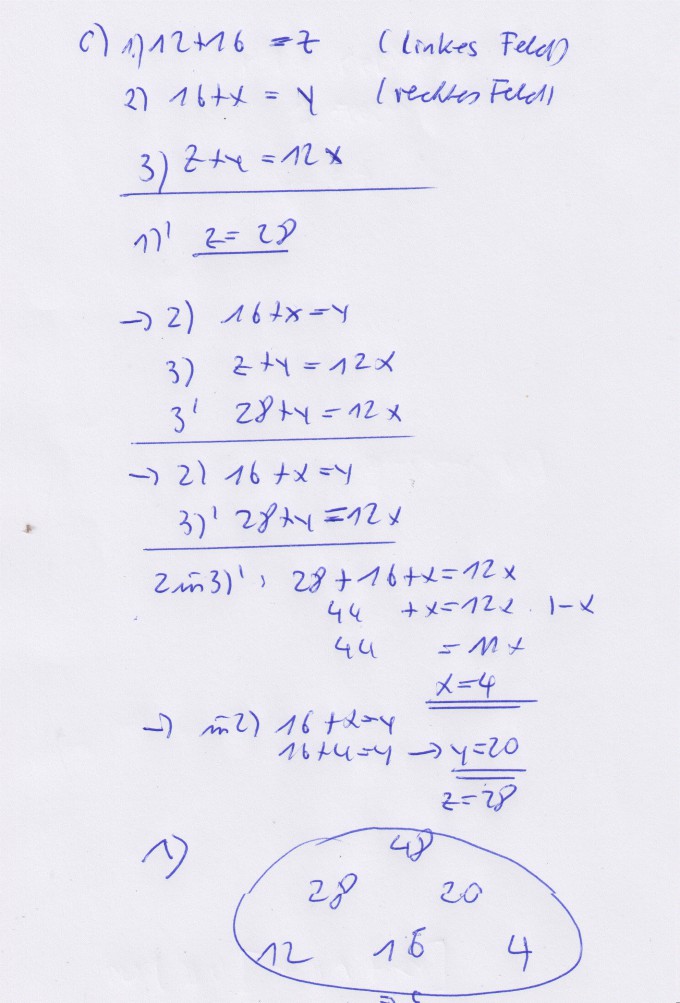 c) 1.) 12+16 = z (linkes Feld)
2) 16+x = y (rechtes Feld)
3) z+y = 12x
1)' z = 28
→ 2) 16+x=y
3) z+y=12x
3' 28+y=12x
→ 2) 16+x=y
3)' 28+y=12x
2 in 3)' : 28+16+x=12x
44 +x=12x |-x
44 = 11x
x=4
→ in 2) 16+x=y
16+4=y → y=20
z=28
1)
48
28 20
12 16 4